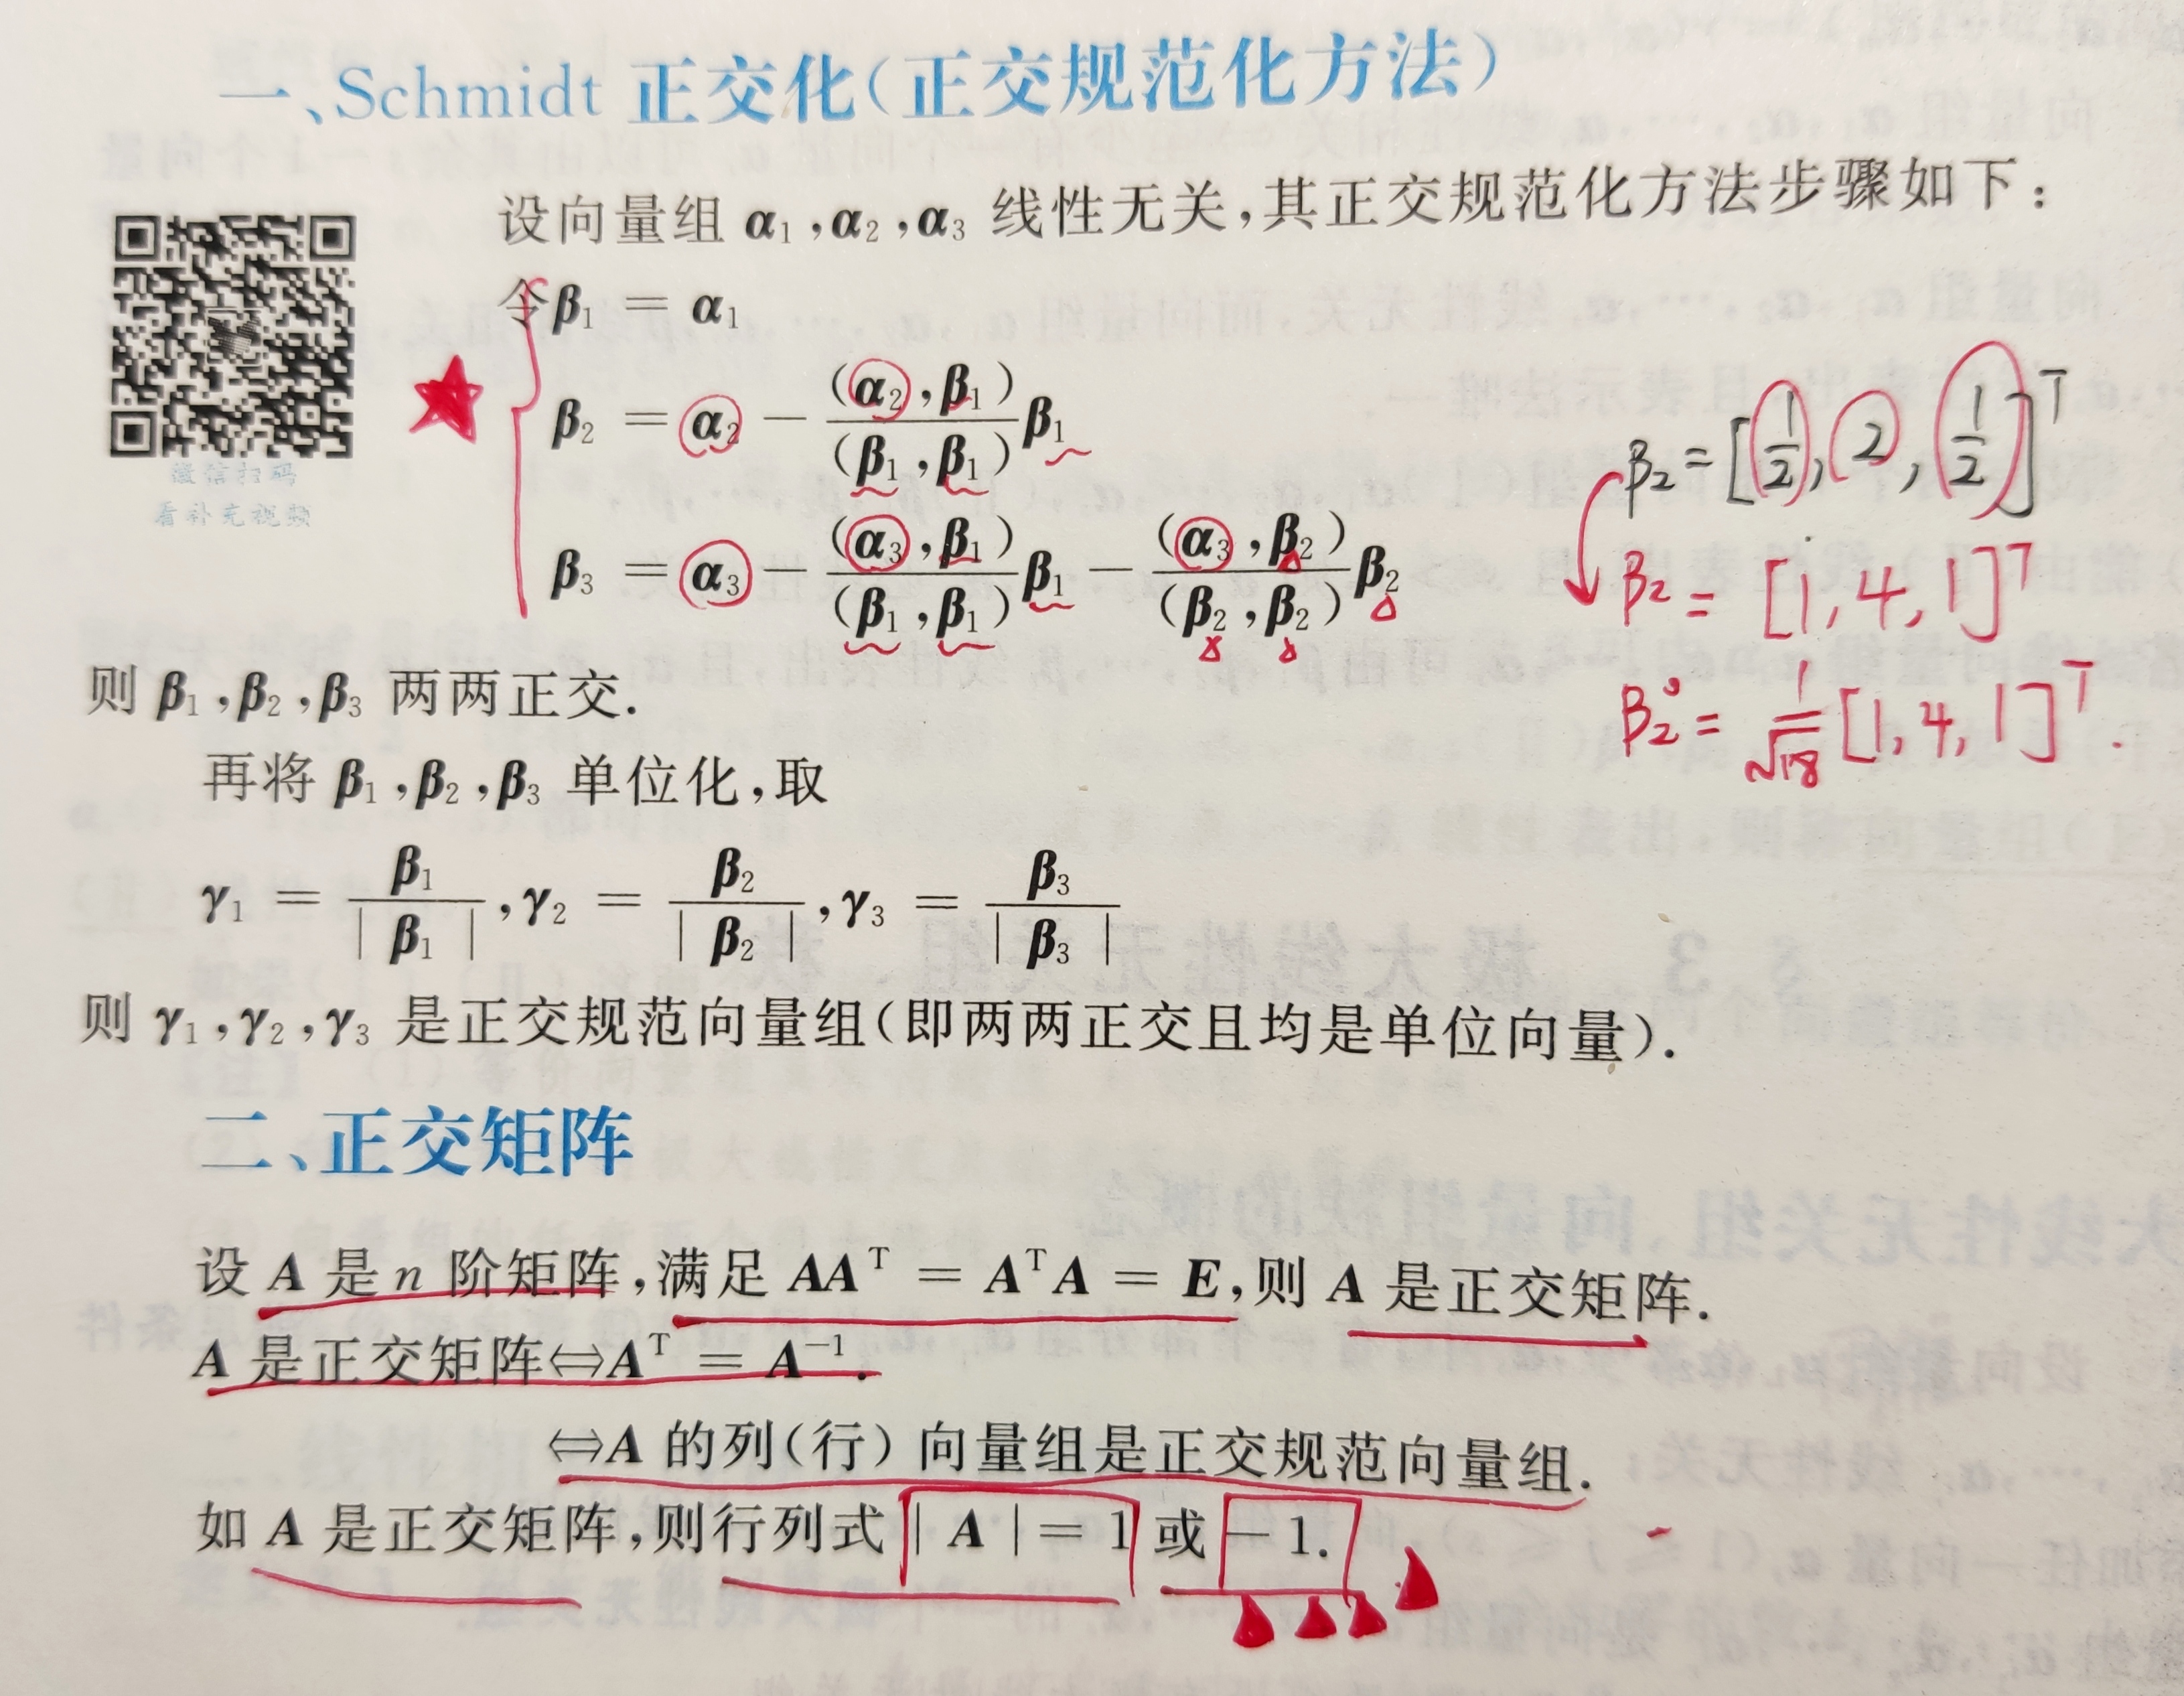 一、Schmidt 正交化(正交规范化方法)
设向量组 α₁,α₂,α₃ 线性无关,其正交规范化方法步骤如下:
令β₁ = α₁
β₂ = α₂ − (α₂,β₁)/(β₁,β₁) β₁
β₃ = α₃ − (α₃,β₁)/(β₁,β₁) β₁ − (α₃,β₂)/(β₂,β₂) β₂
微信扫码
看补充视频
β₂ = [1/2, 2, 1/2]ᵀ
β₂ = [1, 4, 1]ᵀ
β₂° = 1/√18 [1, 4, 1]ᵀ.
则 β₁,β₂,β₃ 两两正交.
再将 β₁,β₂,β₃ 单位化,取
γ₁ = β₁/|β₁|,γ₂ = β₂/|β₂|,γ₃ = β₃/|β₃|
则 γ₁,γ₂,γ₃ 是正交规范向量组(即两两正交且均是单位向量).
二、正交矩阵
设 A 是 n 阶矩阵,满足 AAᵀ = AᵀA = E,则 A 是正交矩阵.
A 是正交矩阵⇔Aᵀ = A⁻¹.
⇔A 的列(行)向量组是正交规范向量组.
如 A 是正交矩阵,则行列式 |A| = 1 或 −1.